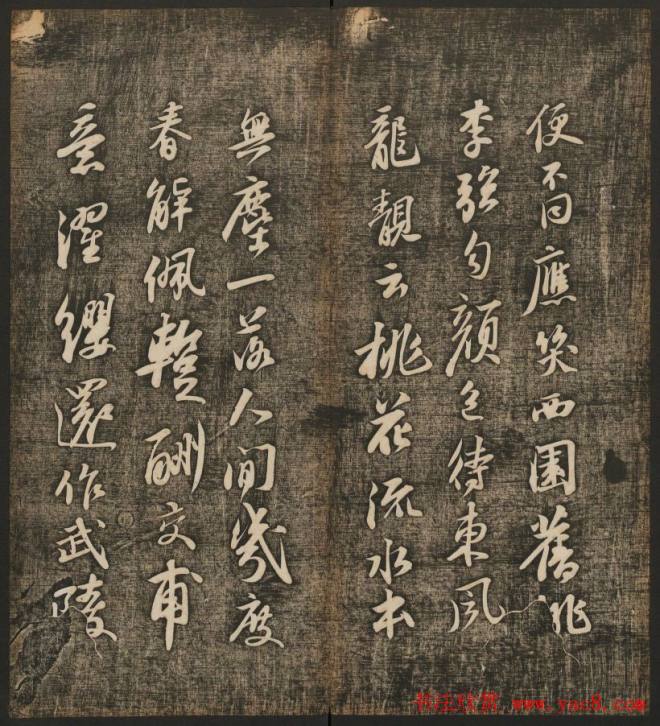 便不同應笑西園舊桃
李強勻顏色待東風
龍靚云桃花流水本
無塵一落人間幾度
春解佩暫酬交甫
意濯纓還作武陵
书法欣赏 www.yac8.com